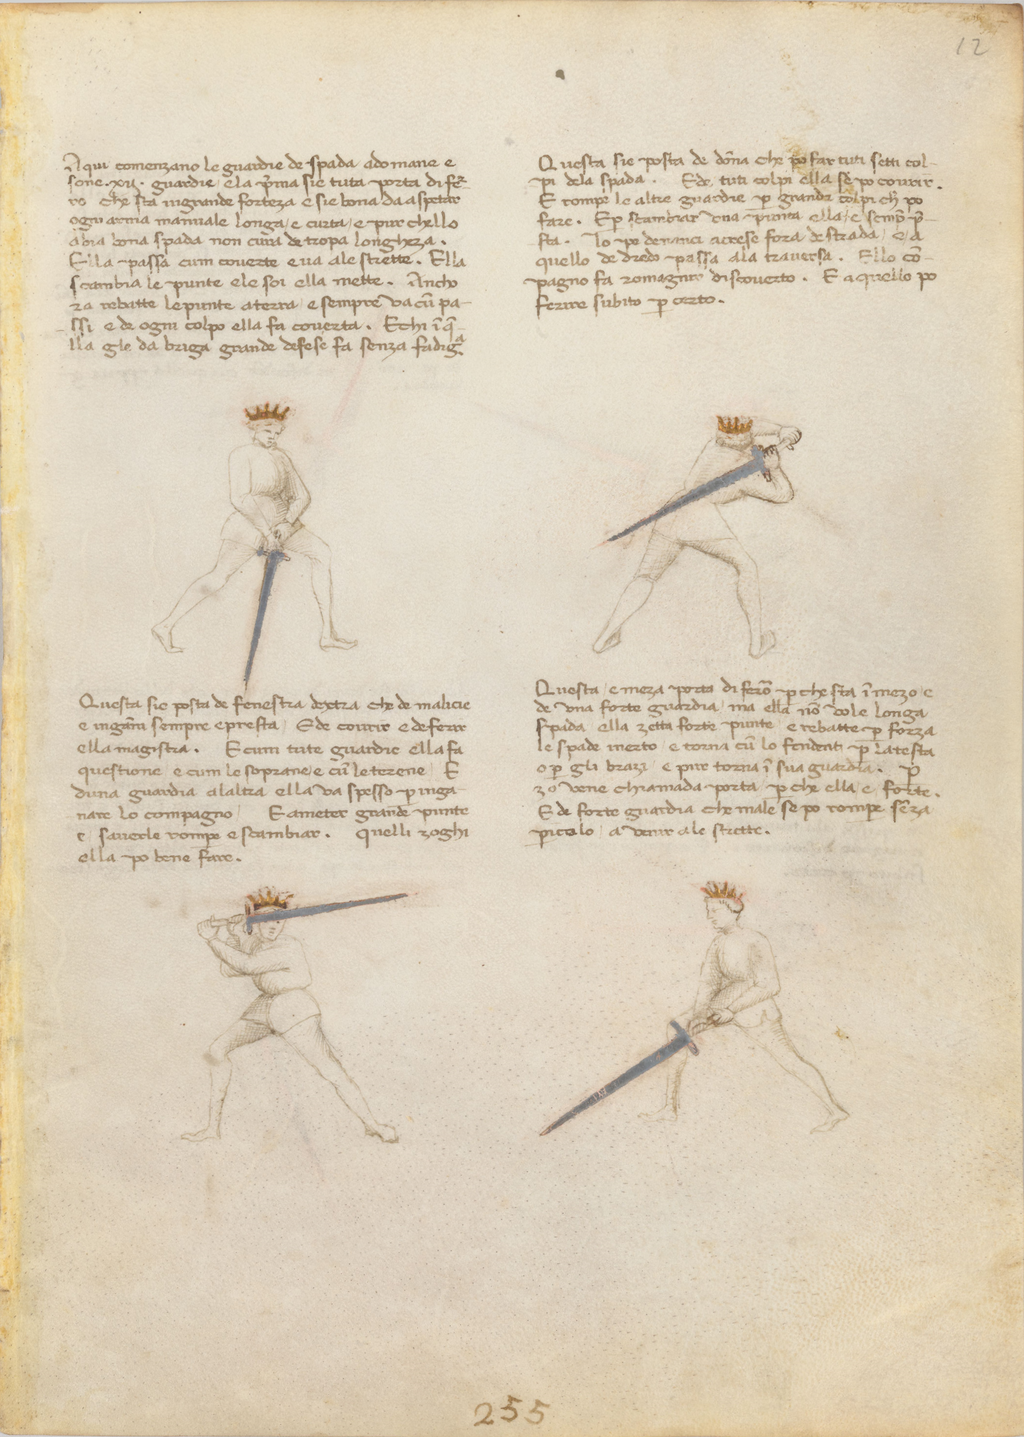 12
Aqui comenzano le guardie de spada adomane e
sone .xij. guardie e la p̄ma sie tuta porta di fer̄-
ro che sta in grande forteza e sie bona da aspetar
ogni arma manuale longa e curta e pur che llo
abia bona spada non cura de tropa longheza.
Ella passa cum couerte e ua ale strette. Ella
scambia le punte e le soi ella mette. Ancho-
ra rebatte le punte a terra e sempre va cū pa-
ssi e de ogni colpo ella fa couerta. E chi ī q̄-
lla gle da briga grande defese fa senza fadiga
Questa sie posta de dōna che po far tuti setti col-
pi dela spada. E de tuti colpi ella se po courir.
E rompe le altre guardie p̱ grandi colpi ch̄ po
fare. E p̱ scambiar vna punta ella e semp̱ p̄-
sta. Lo pe denanci acrese fora de strada e a
quello de dredo passa ala traversa. E llo cō-
pagno fa romagnir discoverto. E a quello po
ferire subito p̱ certo.
Questa sie posta de fenestra dextra che de malicie
e ingāni sempre e presta. E de courir e de ferir
ella magistra. E cum tute guardie ella fa
questione e cum le soprane e cū le terene E
duna guardia alaltra ella va spesso p̱ inga-
nare lo compagno E a meter grande punte
e sauerle rompe e scambiar. quelli zoghi
ella po bene fare.
Questa e meza porta di ferō p̱che sta ī mezo e
de vna forte guardia ma ella nō vole longa
spada ella zetta forte punte e rebatte p̱ forza
le spade inerto e torna cū lo fendenti p̱ la testa
o p̱ gli brazi e pur torna ī sua guardia. p̱
zo vene chiamada porta p̱che ella e forte.
E de forte guardia che male se po rompe sēza
p̱icolo a venir ale strette.
255